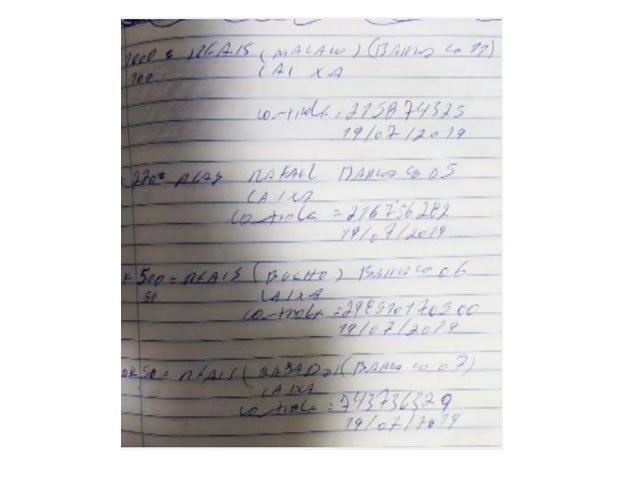 1000 = REAIS (MACACO) (BANCO CO 11)
100 CAI XA
controle = 215874325
19/07/2019
220 = REAIS RAFAEL BANCO CO 05
CAIXA
controle = 216756282
19/07/2019
500 = REAIS (BUCHO) BANCO CO 06
50 CAIXA
controle =
19/07/2019
OK 50 = REAIS (BANCO CO 07)
CAIXA
controle = 743736329
19/07/2019